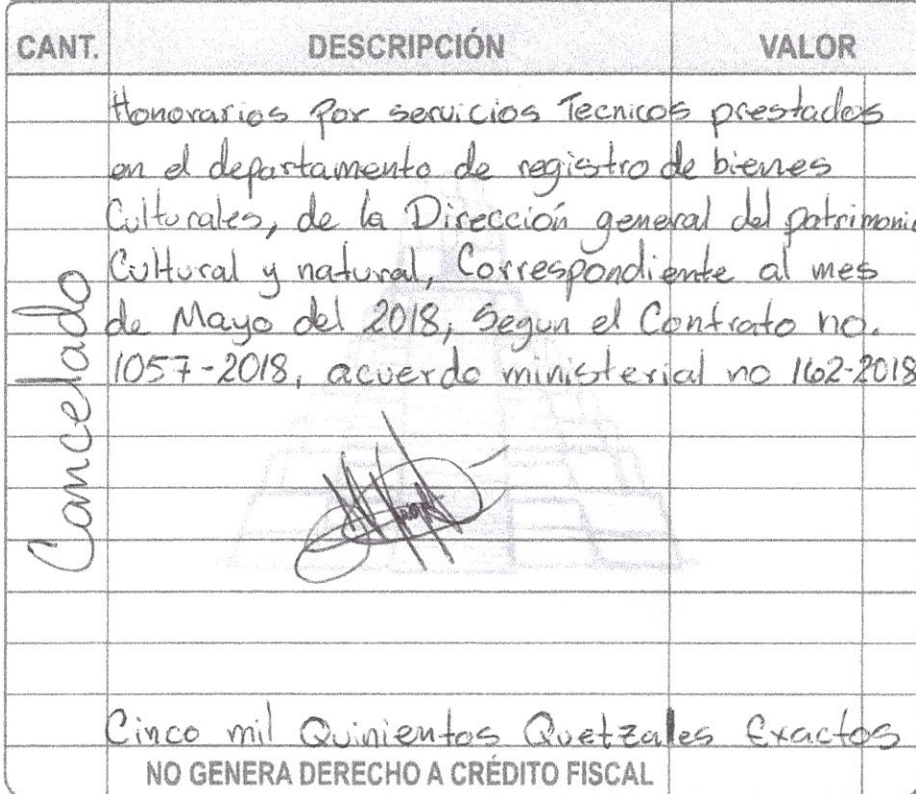 CANT. DESCRIPCIÓN VALOR
Honorarios por servicios Tecnicos prestados
en el departamento de registro de bienes
Culturales, de la Dirección general del patrimonio
Cultural y natural, Correspondiente al mes
de Mayo del 2018, Segun el Contrato no.
1057-2018, acuerdo ministerial no 162-2018
Cancelado
Cinco mil Quinientos Quetzales Exactos
NO GENERA DERECHO A CRÉDITO FISCAL